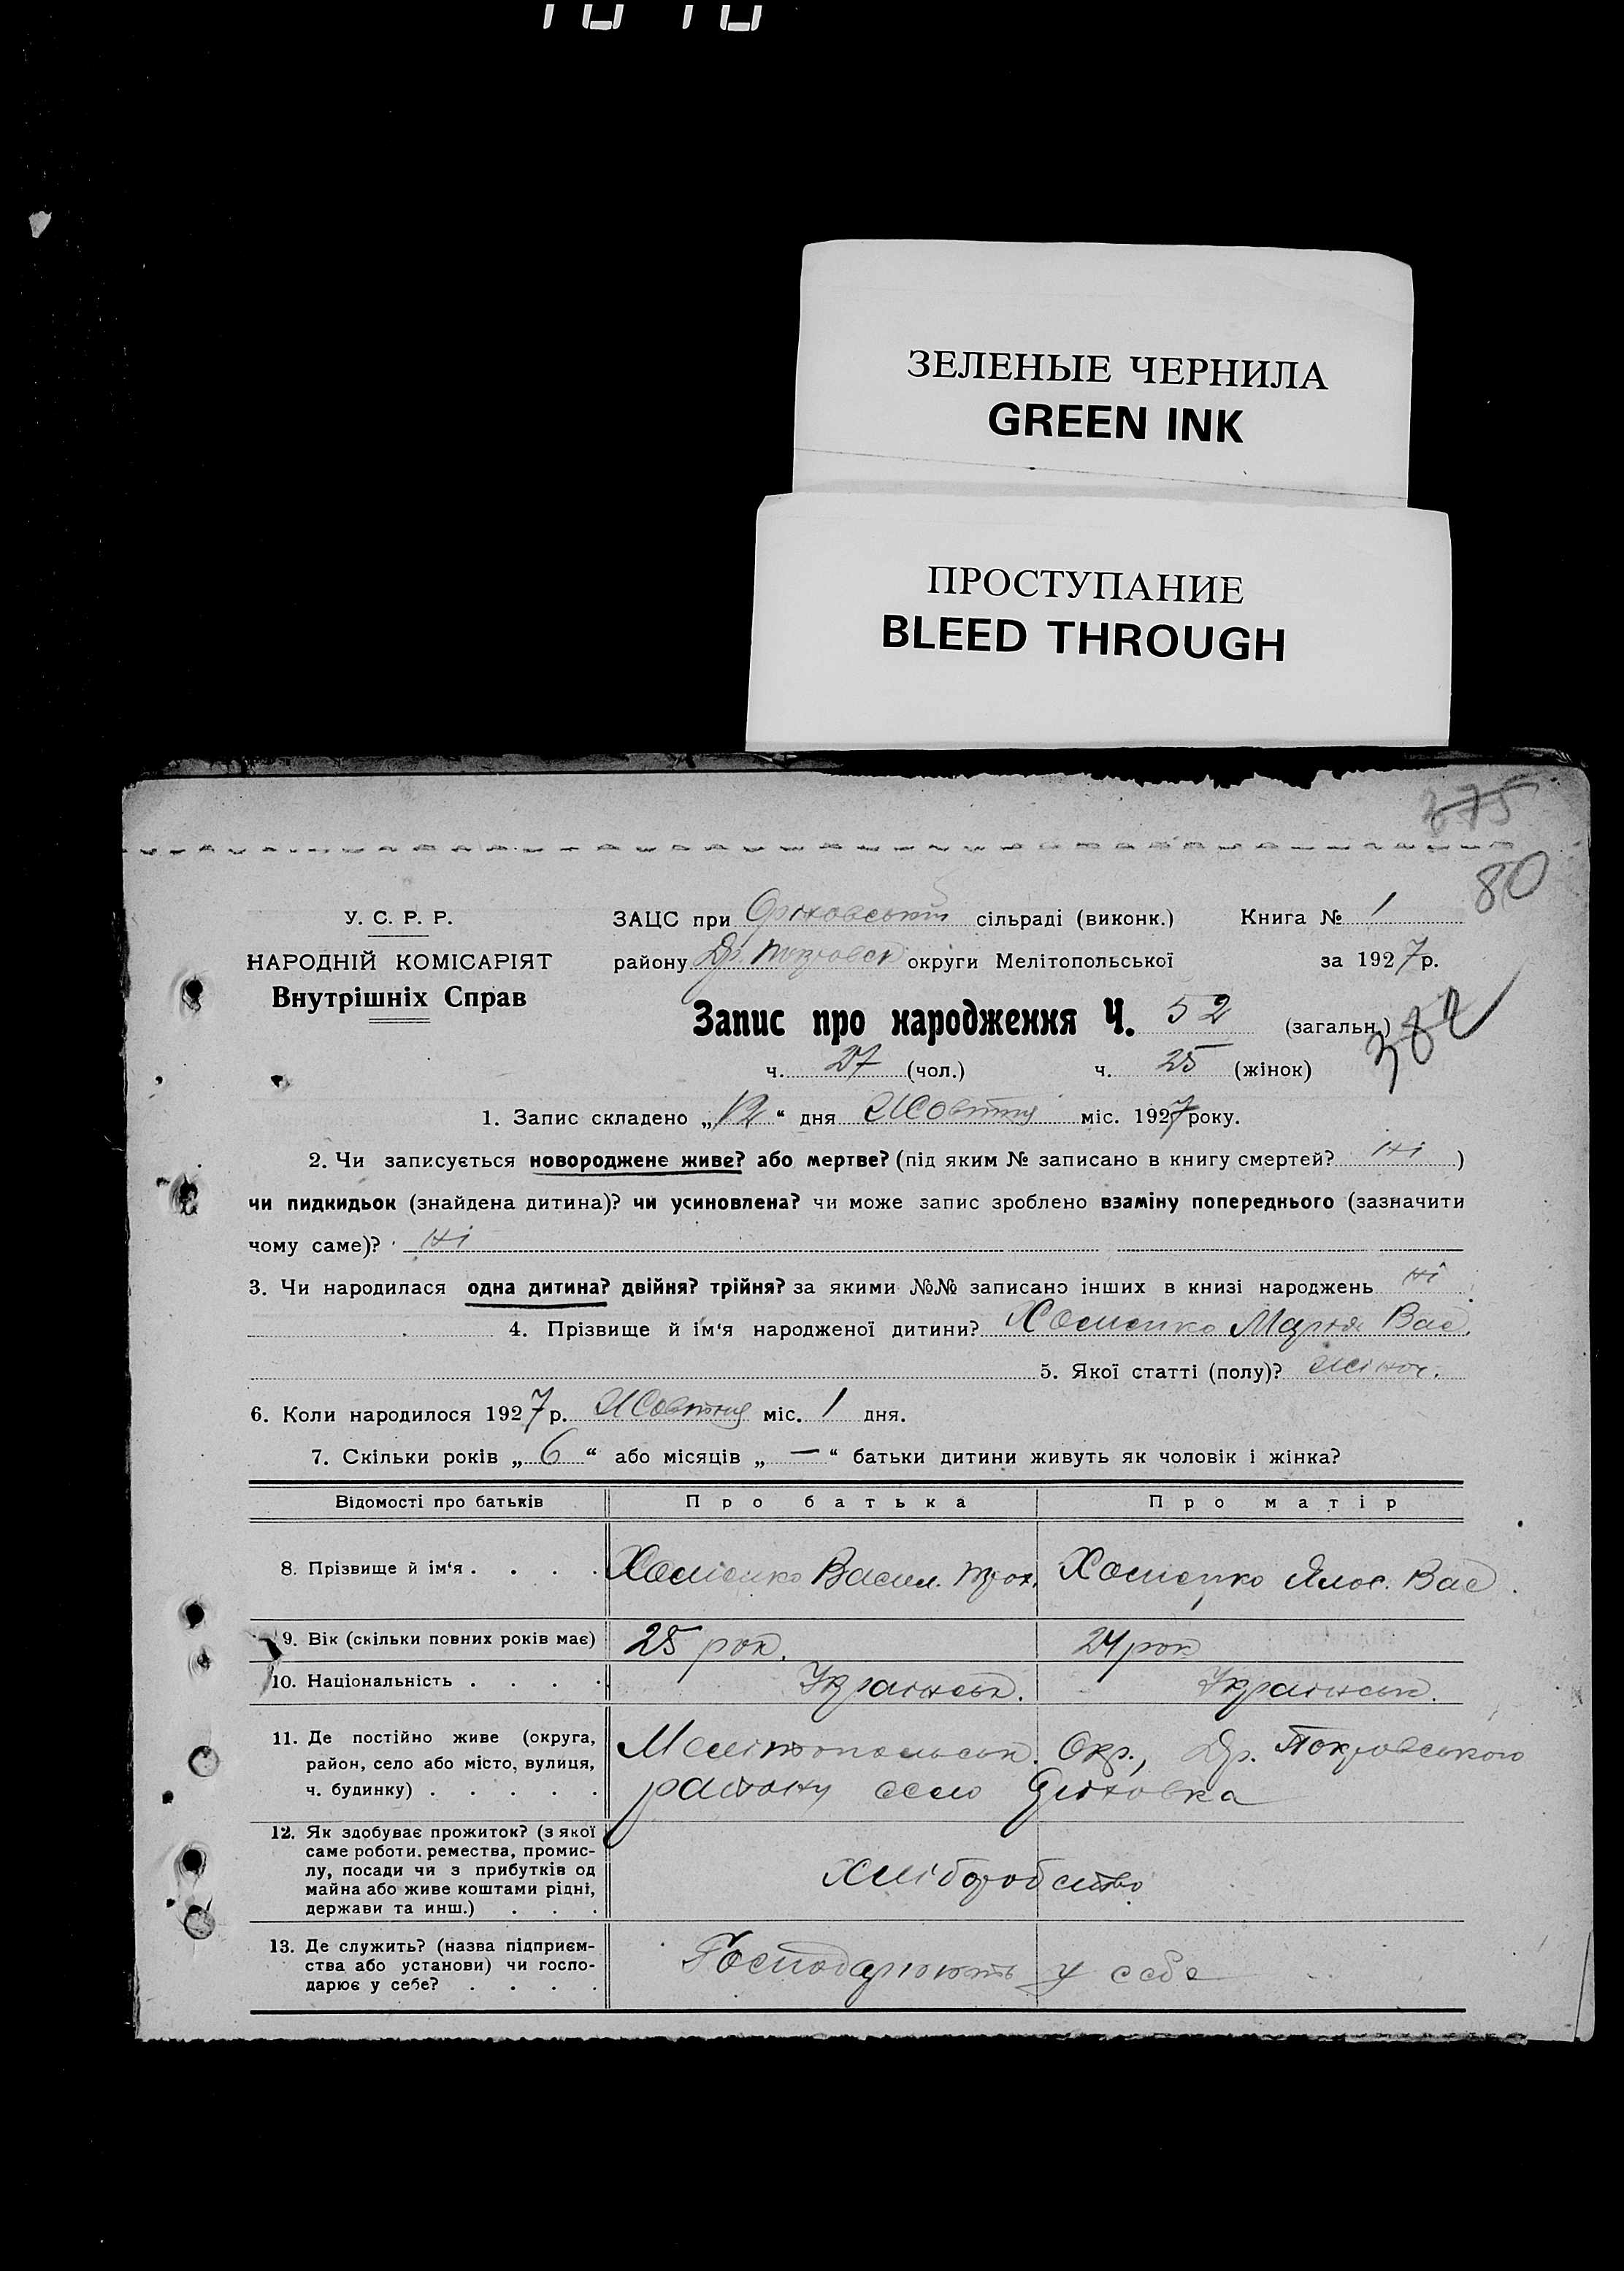 ЗЕЛЕНЫЕ ЧЕРНИЛА
GREEN INK
ПРОСТУПАНИЕ
BLEED THROUGH
375
80
У. С. Р. Р.
НАРОДНІЙ КОМІСАРІЯТ
Внутрішніх Справ
ЗАЦС при сільраді (виконк.) Книга № 1
району округи Мелітопольської за 1927 р.
Запис про народження Ч. 52 (загальн.)
ч. 27 (чол.) ч. 25 (жінок)
1. Запис складено „12“ дня Жовтня міс. 1927 року.
2. Чи записується новороджене живе? або мертве? (під яким № записано в книгу смертей? Ні )
чи пидкидьок (знайдена дитина)? чи усиновлена? чи може запис зроблено взаміну попереднього (зазначити
чому саме)? Ні
3. Чи народилася одна дитина? двійня? трійня? за якими №№ записано інших в книзі народжень Ні
4. Прізвище й ім‘я народженої дитини? Хоменко Марія Вас.
5. Якої статті (полу)? жіноч.
6. Коли народилося 1927 р. Жовтня міс. 1 дня.
7. Скільки років „6“ або місяців „—“ батьки дитини живуть як чоловік і жінка?
Відомості про батьків Про батька Про матір
8. Прізвище й ім‘я . . . . Хоменко Васил. Троx. Хоменко Вас.
9. Вік (скільки повних років має) 25 рок. 24 рок
10. Національність . . . . Українськ. Українськ.
11. Де постійно живе (округа, Мелітопольськ. Окр., Др. Покровського
район, село або місто, вулиця, району село
ч. будинку) . . . . .
12. Як здобуває прожиток? (з якої
саме роботи. ремества, промис-
лу, посади чи з прибутків од хліборобство
майна або живе коштами рідні,
держави та инш.) . . .
13. Де служить? (назва підприєм-
ства або установи) чи госпо- Господарюють у себе
дарює у себе? . . . .